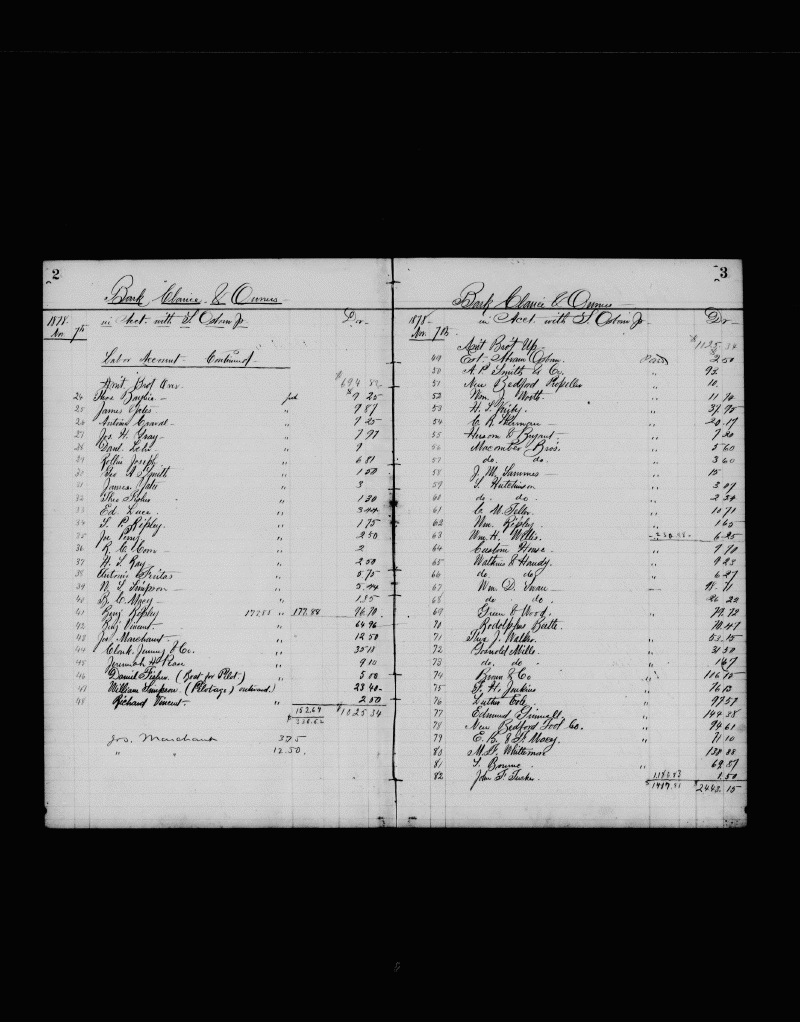 2
Bark Clarice & Owners
1878 in Acct. with S. Osborn Jr. Dr
Nov. 7th
Labor Account Continued
Amt Brot Over 694 82
24 Thos Baylies paid 9 25
25 James Yates " 9 87
26 Antoine " 9 25
27 Jos. H. Gray " 7 97
28 Danl. " 9
29 Rollin Joseph " 6 51
30 Geo A Smith " 1 50
31 James Yates " 3
32 Theo " 1 30
33 Ed. Luce " 3 44
34 S. P. Ripley " 1 75
35 " 2 50
36 R. C. " 2
37 H. S. Ray " 2 50
38 Antonio Freitas " 5 75
39 N. S. Simpson " 5 44
40 B. C. Macy " 1 35
41 Benj Ripley 177.88 " 177.88 96 70
42 Benj Vincent " 64 96
43 Jos. Marchant " 12 50
44 Clark Jenny & Co. " 35 18
45 Jeremiah H Pease " 9 10
46 Daniel Fisher (Boat for Pilot.) " 5 00
47 William Simpson (Pilotage) outwards " 23 40
48 Richard Vincent " 2 50
152.64 $1025 34
$330.52
Jos. Marchant 375
" " 12.50.
3
Bark Clarice & Owners
1878 in Acct with S. Osborn Jr Dr
Nov. 7th
Amt Brot Up $1025.34
49 Est. Abram Osborn Paid 2 50
50 A. P. Smith & Co. " 92
51 New Bedford Propeller " 10
52 Wm. J. " 11 70
53 H. S. Kirby " 37 95
54 C. R. Sherman " 20 17
55 Hersom & Bryant " 7 20
56 Macomber Bros. " 5 60
57 do. do. " 3 60
58 J. M. " 15
59 S. Hutchinson " 3 07
60 do. do. " 2 34
61 C. W. " 10 71
62 Wm. Ripley " 1 65
63 Wm. H. Willis 230.88 6 25
64 Custom House " 9 70
65 Watkins & Handy " 9 23
66 do do " 6 27
67 Wm D. " 98 71
68 do do " 26 22
69 Green & Wood " 79.72
70 Rodolphus Beetle " 70.47
71 Thos J. Walker " 53.15
72 Grinnell Mills " 31 50
73 do. do. " 167
74 Brown & Co " 106 75
75 F. H. Jenkins " 76 13
76 Luther Cole " 97 57
77 Edmund Grinnell " 144 38
78 New Bedford Tool Co. " 94 61
79 E. B. & F. Macy " 71 10
80 M. H. Whittemore " 138 88
81 S. Bourne " 69.57
82 John F. Tucker 1186.93 1.50
$1417.81 $2443.15